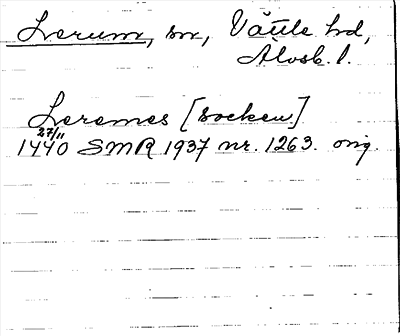 Lerum, sn, Vättle hd,
Älvsb. l.
Leremes [socken]
27/11
1440 SMR 1937 nr. 1263. orig.